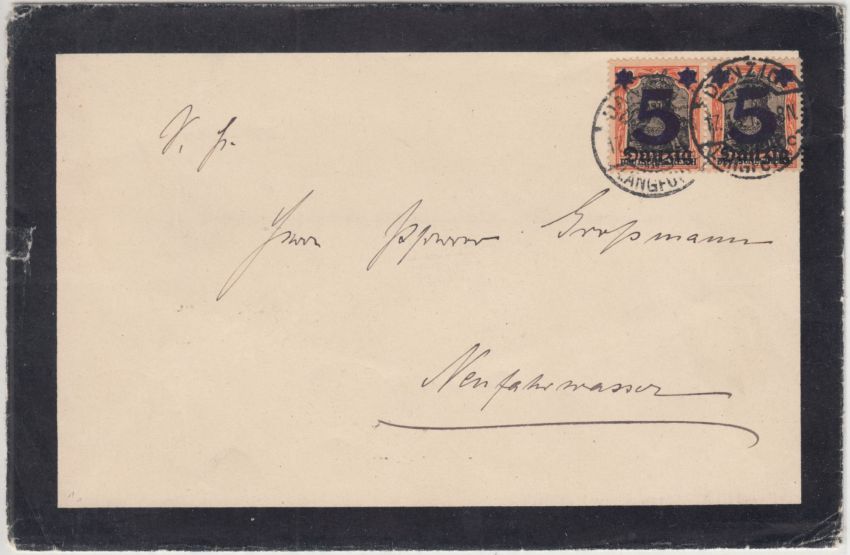 5 5
Danzig Danzig
DANZIG
LANGFUHR
Herrn Pfarrer Großmann
Neufahrwasser